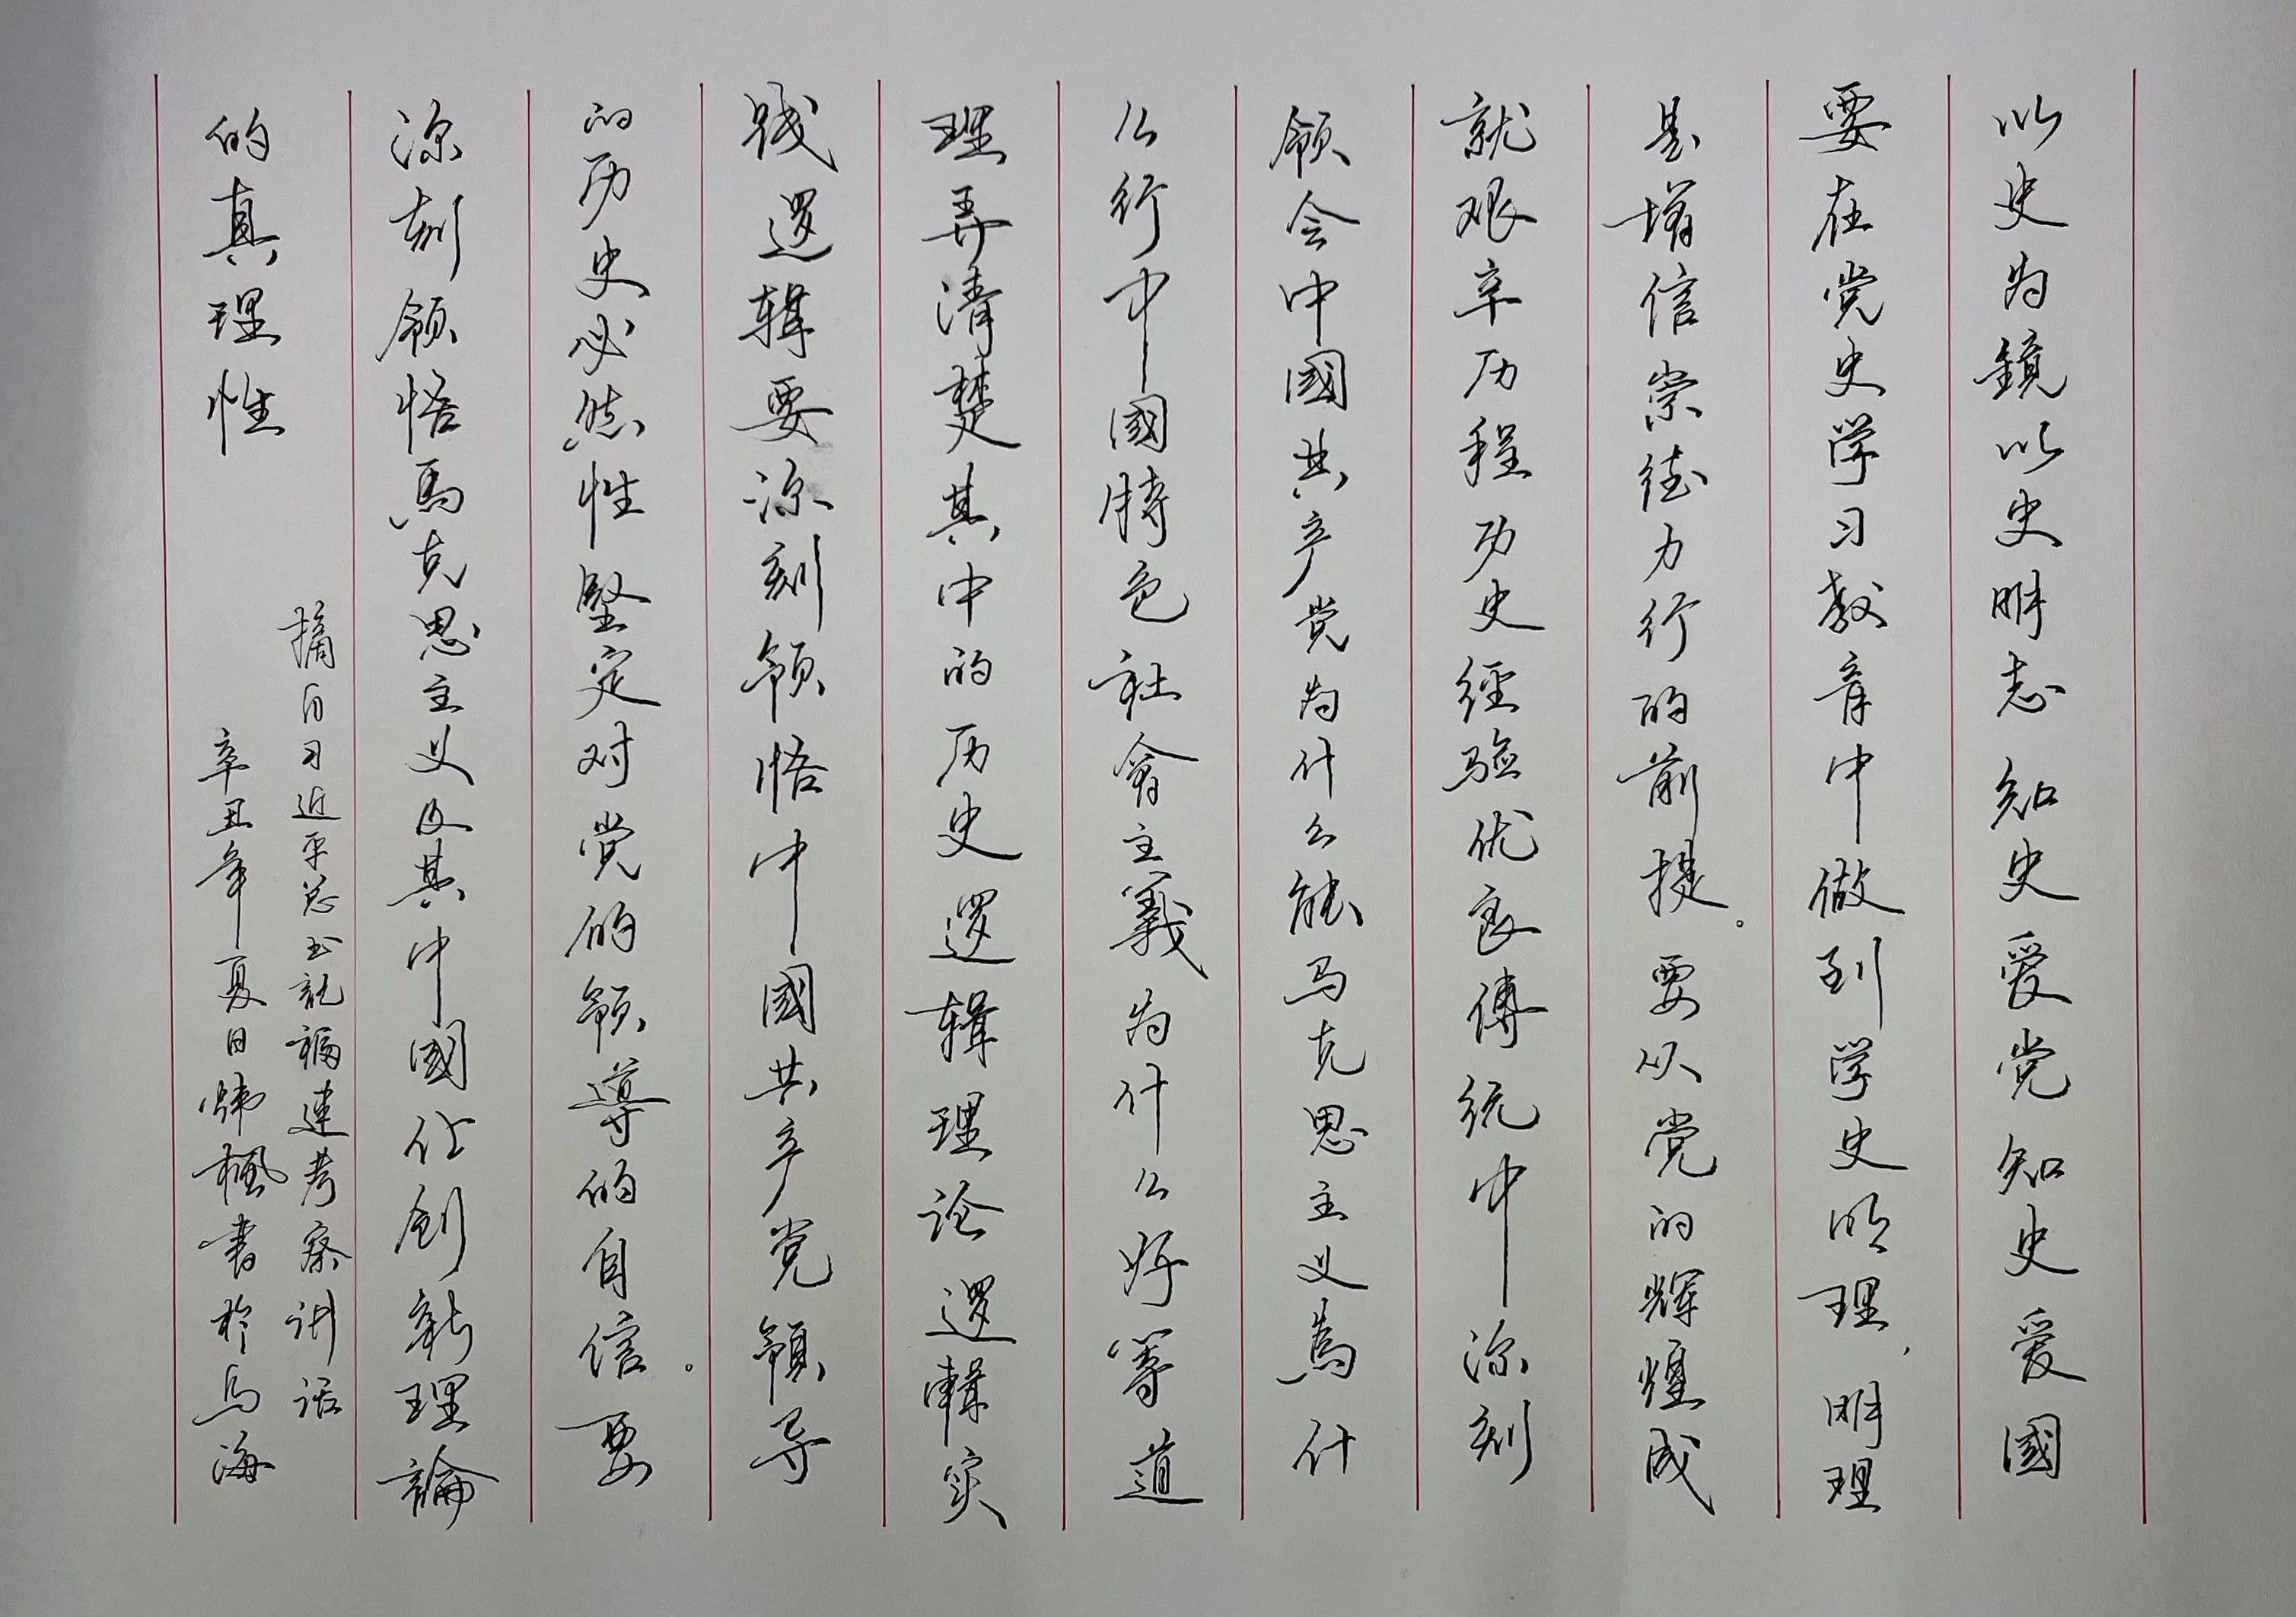 以史为鏡以史明志知史爱党知史爱國
要在党史学习教育中做到学史明理，明理
是增信崇德力行的前提。要从党的辉煌成
就艰辛历程历史经验优良傅统中深刻
领会中國共产党为什么能马克思主义為什
么行中國特色社會主義为什么好等道
理弄清楚其中的历史逻辑理论逻輯实
践逻辑要深刻领悟中國共产党領导
的历史必然性堅定对党的领導的自信。要
深刻领悟馬克思主义及其中國化创新理論
的真理性
摘自习近平总书記福建考察讲话
辛丑年夏日炜楓書於乌海